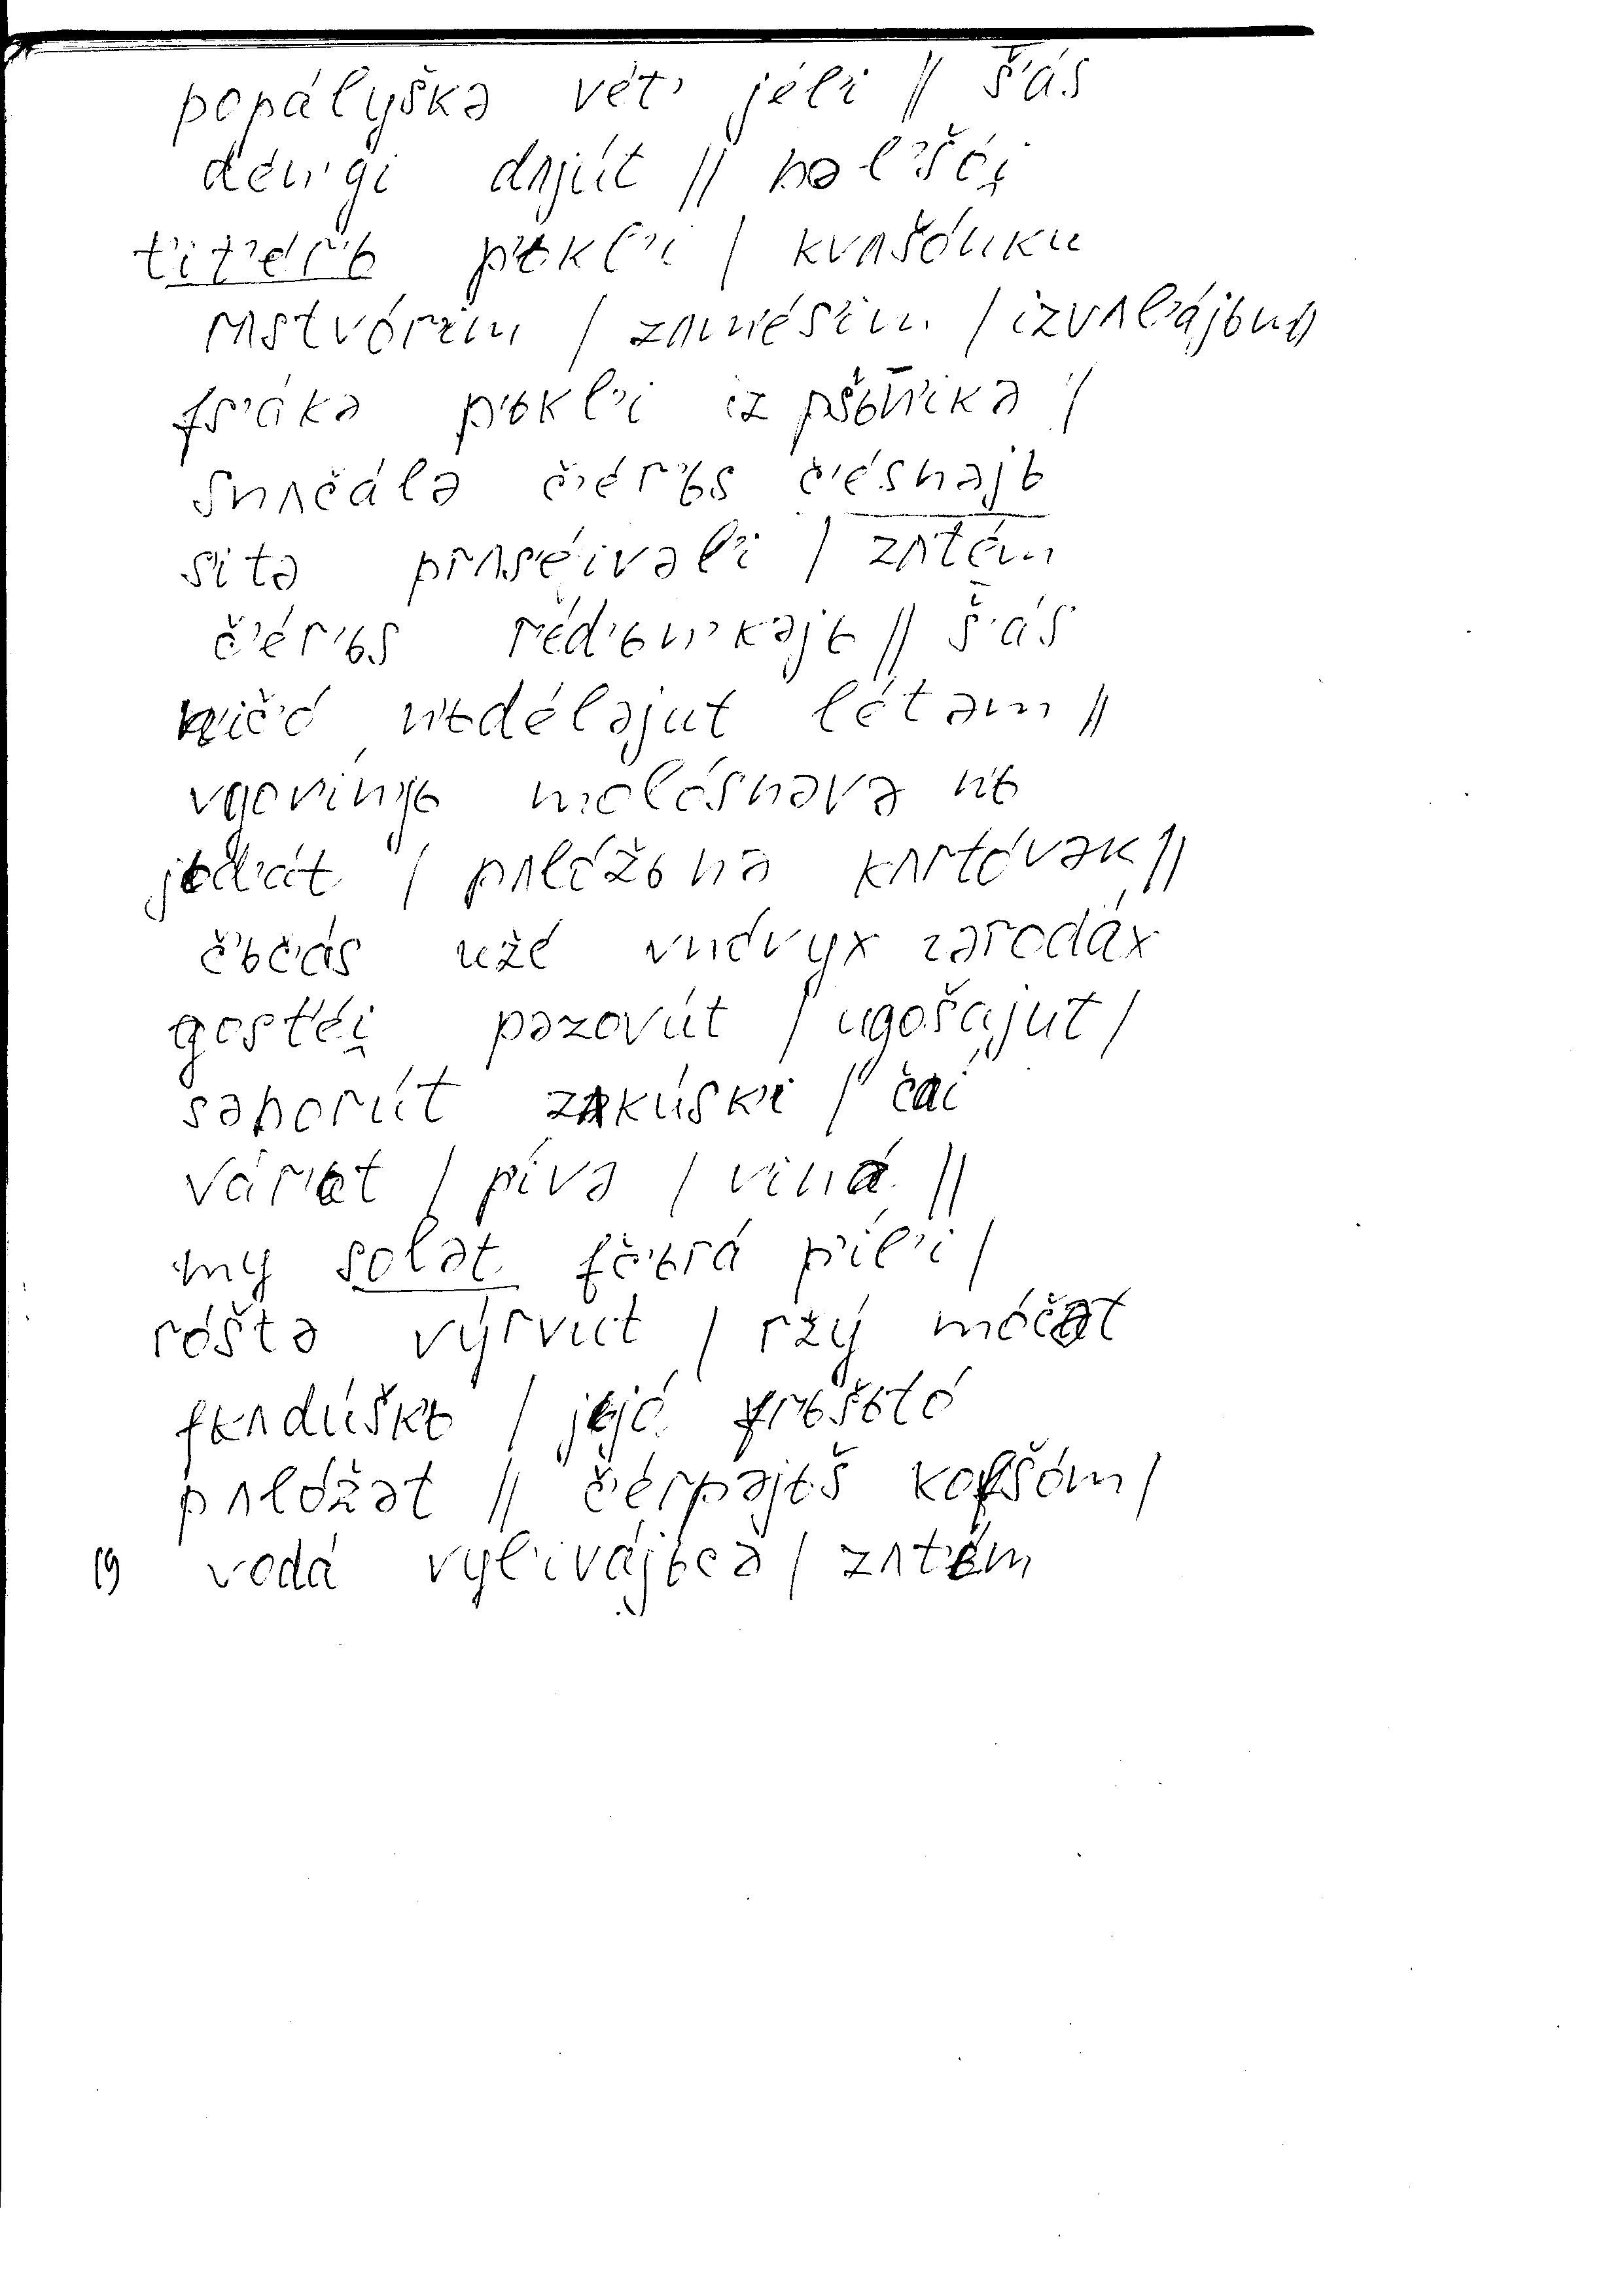 popályška vét' jél'i // š̄'ás
d'én'gi dʌjút // nəl'išé̯i
t'it'ér'ь p'ьkl'í / kvʌšónku
rʌstvór'im / zʌm'és'im / izvʌl'ájьm
fs'ákə p'ьkl'i iz pšьn'íkə /
snʌčálə č'ér'ьs č'ésnəjь
s'itə prʌs'éivəl'i / zʌtém
č'ér'ьs r'éd'ьn'kəjь // š̄'ás
n'ič'ó n'ьdéləjut létəm //
vgovín'jь molósnəvə n'ь
jьd'át / pʌlóžьnə kʌrtóvək //
č'ьč'ás užé vnóvyx zərodáx
gost'éi̯ pəzovút / ugošájut /
səborút zʌkúsk'i / čái
vár'ьt / p'ívə / v'iná //
my solət fč'ьrá p'íl'i /
róštə výrvut / ržý móčət
fkʌdúškь / jьjó fr'ьšьtó
pʌlóžət // č'érpəjьš kofšóm /
19 vodá vyl'ivájьcə / zʌt'ém